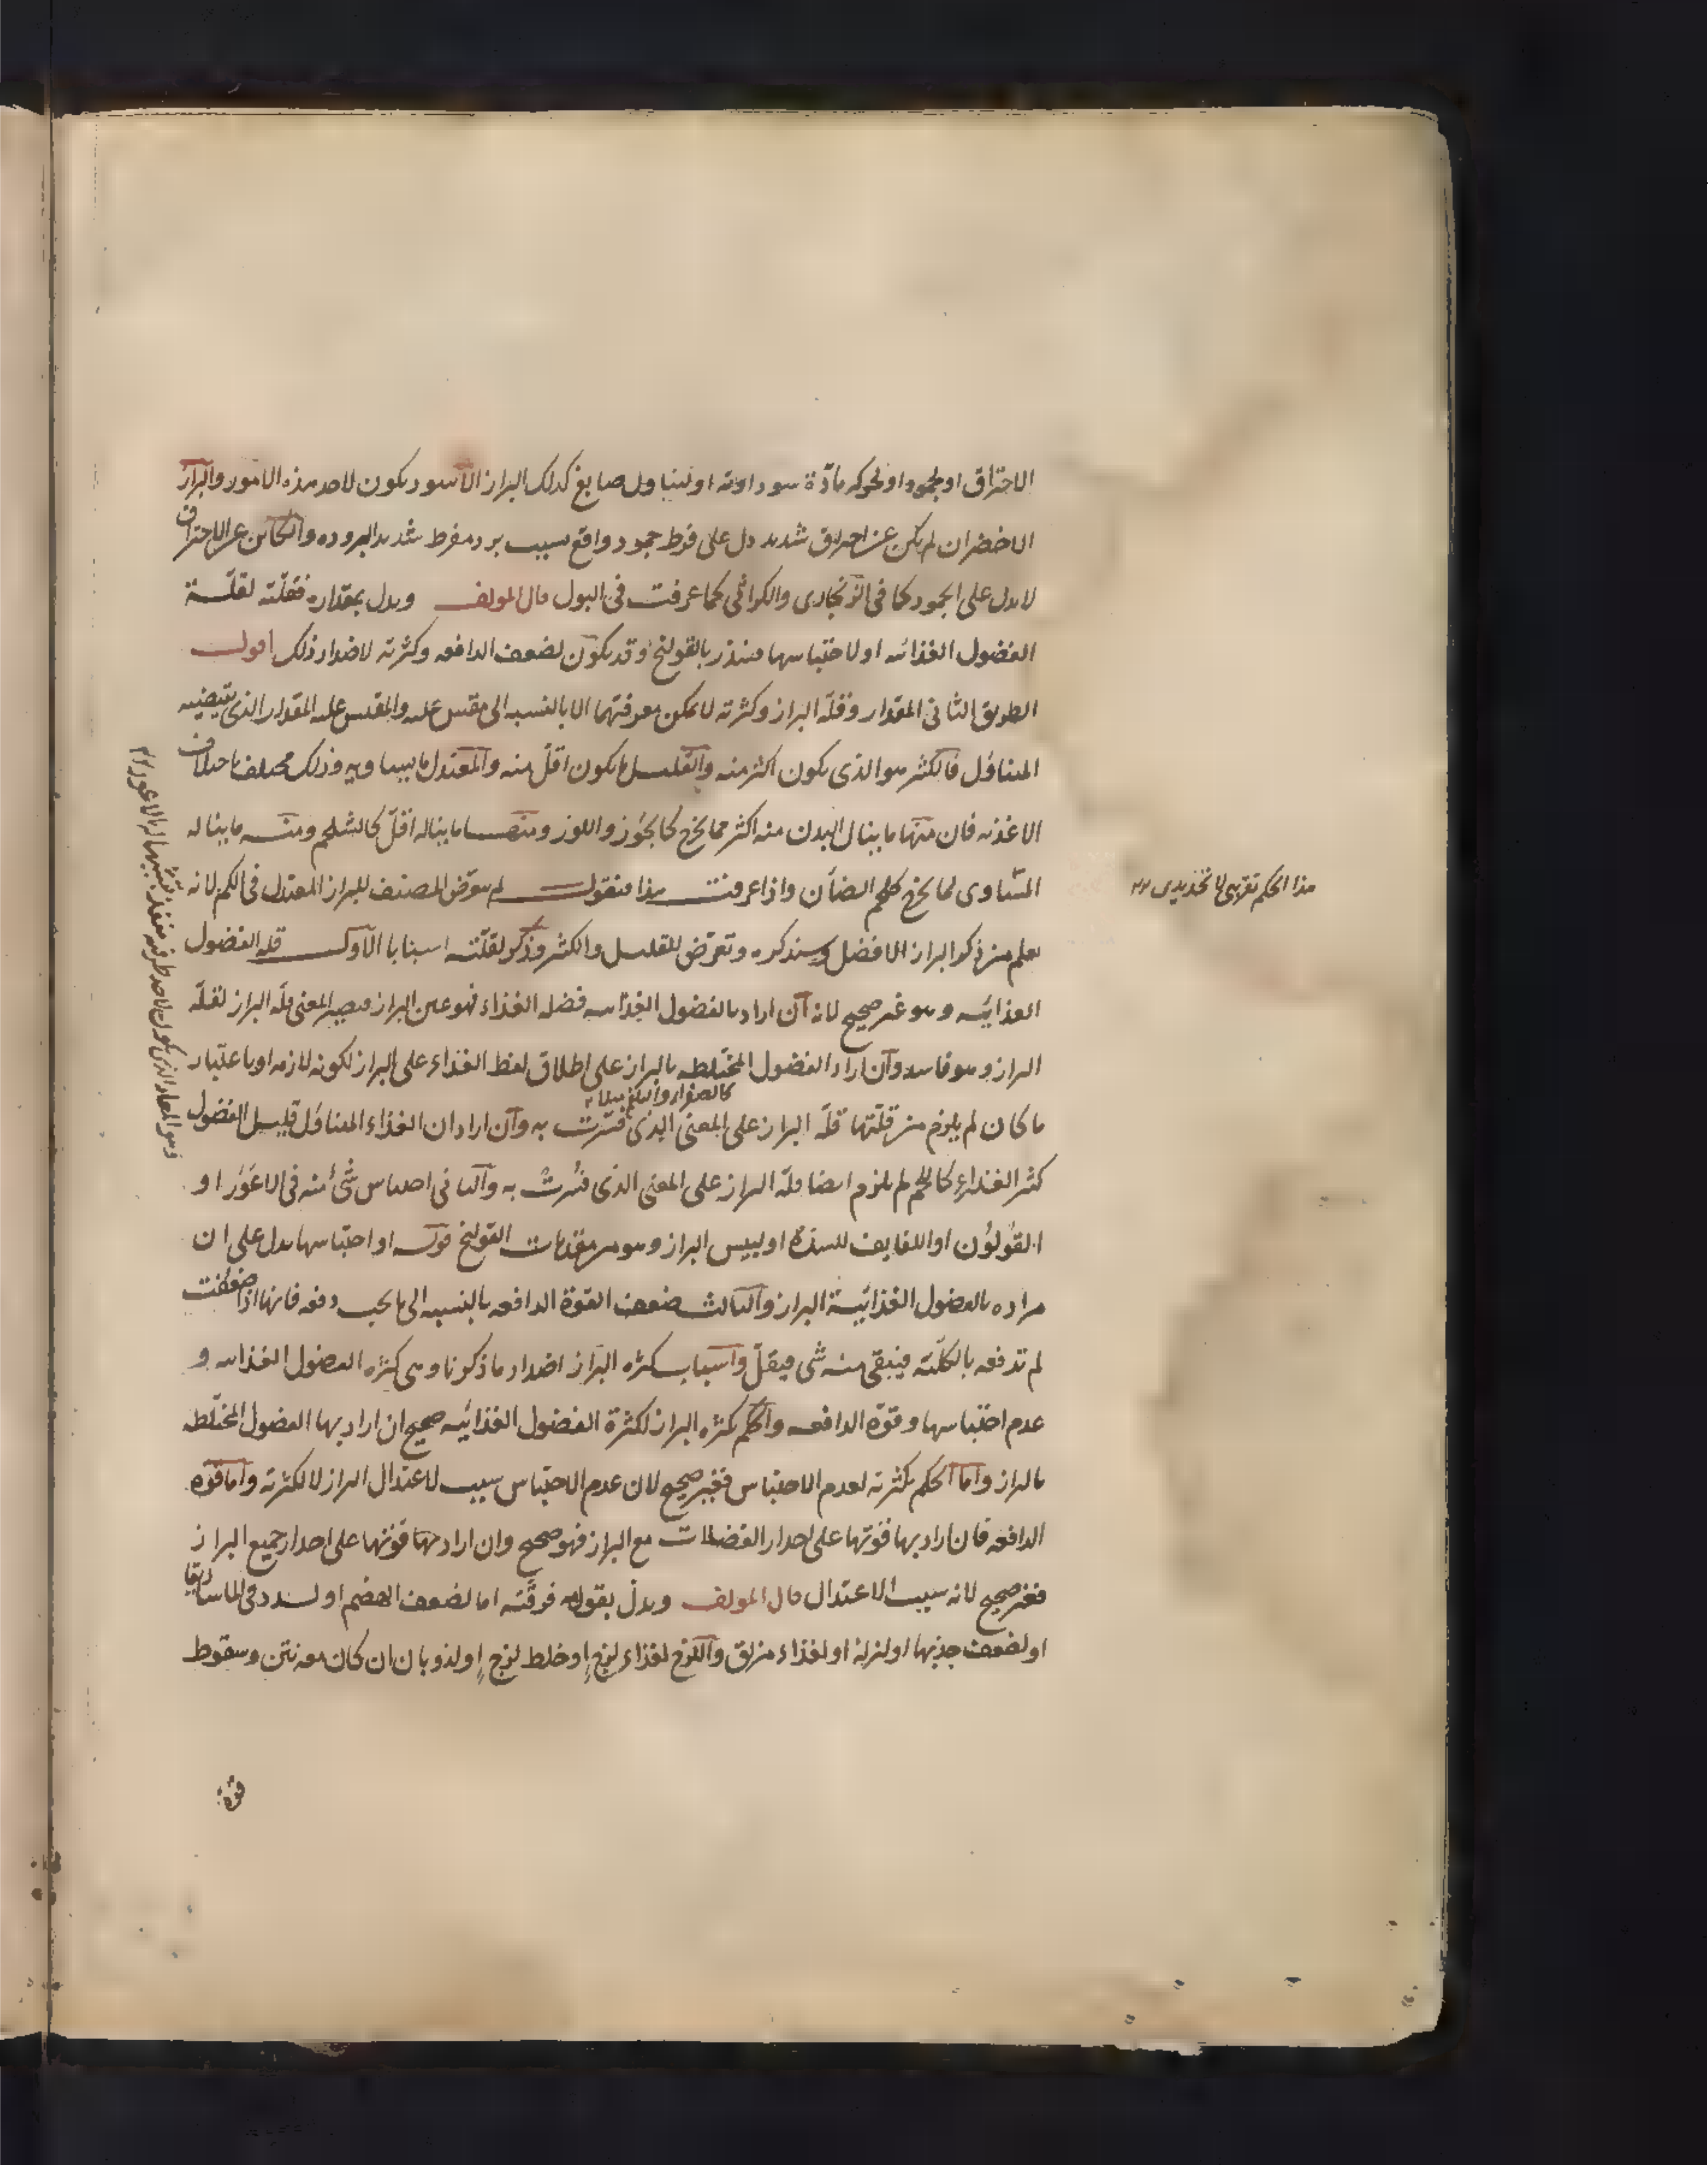 الاحتراق او لجمود او لحركه مادّة سوداويه او لتناول صابغ كذلك البراز الأسود يكون لاحد هذه الامور والبراز
الاخضر ان لم يكن عن احراق شديد دل على فرط جمود واقع بسبب برد مفرط شديد البروده والكائن عن الاحتراق
لا يدل على الجمود كما فى الزنجارى والكراثى كما عرفت فى البول قال المولف ويدل بمقداره فقلّته لقلّة
الفضول الغذائيه او لاحتباسها منذر بالقولنج وقد يكون لضعف الدافعه وكثرته لاضداد ذلك اقول
الطريق الثانى المقدار وقلّة البراز وكثرته لا يمكن معرفتهما الا بالنسبه الى مقيس عليه والمقيس عليه المقدار الذى يقتضيه
المتناول فالكثير هو الذى يكون اكثر منه والقليل ما يكون اقلّ منه والمعتدل ما يساويه وذلك مختلف باختلاف
الاغذيه فان منها ما ينال البدن منه اكثر مما يخرج كالجوز واللوز ومنها ما يناله اقلّ كالشلجم ومنه ما يناله
المتساوى لما يخرج كلحم الضأن واذا عرفت هذا فنقول لم يتعرّض المصنف للبراز المعتدل فى الكم لانه
يعلم من ذكر البراز الافضل وسنذكره وتعرّض للقليل والكثير وذكر لقلّته اسبابا الآول قلة الفضول
الغذائيّه وهو غير صحيح لانه ان اراد بالفضول الغذائيه فضله الغذاء فهو عين البراز فيصير المعنى قلّة البراز لقلّة
البراز وهو فاسد وآن اراد الفضول المختلطه بالبراز على اطلاق لفظ الغذاء على البراز لكونه لازمه او باعتبار
كالصفراء والبلغم مثلا
ما كان لم يلزم من قلّتها قلّة البراز على المعنى الذى فسّرت به وآن اراد ان الغذاء المتناول قليل الفضول
كثير الغذاء كاللحم لم يلزم ايضا قلّة البراز على المعنى الذى فُسّرت به والثانى احتباس شئ منه فى الاعور او
القولون او اللفايف للسدّة او ليبس البراز وهو من مقدمات القولنج قوله او احتباسها يدل على ان
مراده بالفضول الغذائيّة البراز والثالث ضعف القوّة الدافعه بالنسبه الى ما يجب دفعه فانها اذا ضعفت
لم تدفعه بالكلّيّه فيبقى منه شى فيقلّ واسباب كثره البراز اضداد ما ذكرنا وهى كثره الفضول الغذائيه و
عدم احتباسها وقوّه الدافعه والحكم بكثره البراز لكثرة الفضول الغذائيه صحيح ان اراد بها الفضول المختلطه
بالبراز واما الحكم بكثرته لعدم الاحتباس فغير صحيح لان عدم الاحتباس سبب لاعتدال البراز لا لكثرته واما قوّه
الدافعه فان اراد بها قوّتها على احدار الفضلات مع البراز فهو صحيح وان اراد بها قوّتها على احدار جميع البراز
فغير صحيح لانه سبب الاعتدال قال المولف ويدل بقوامه فرقّته اما لضعف الهضم او لسدد فى الماساريقا
او لضعف جذبها او لنزلة او لغذاء مزلق واللزج لغذاء لزجٍ او خلط لزجٍ او لذوبان ان كان معه نتن وسقوط
قوّة
هذا الحكم تقريبى لا تحديدى